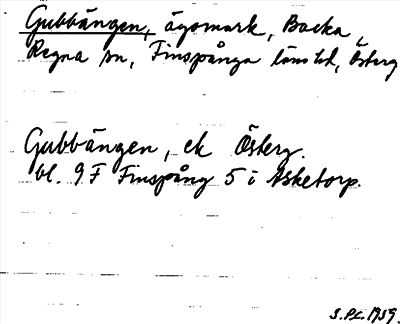 Gubbängen, ägomark, Backa,
Regna sn, Finspånga länsbd, Österg
Gubbängen, ek Österg.
bl. 9F Finspång 5 i Asketorp.
S.P.C. 1959.